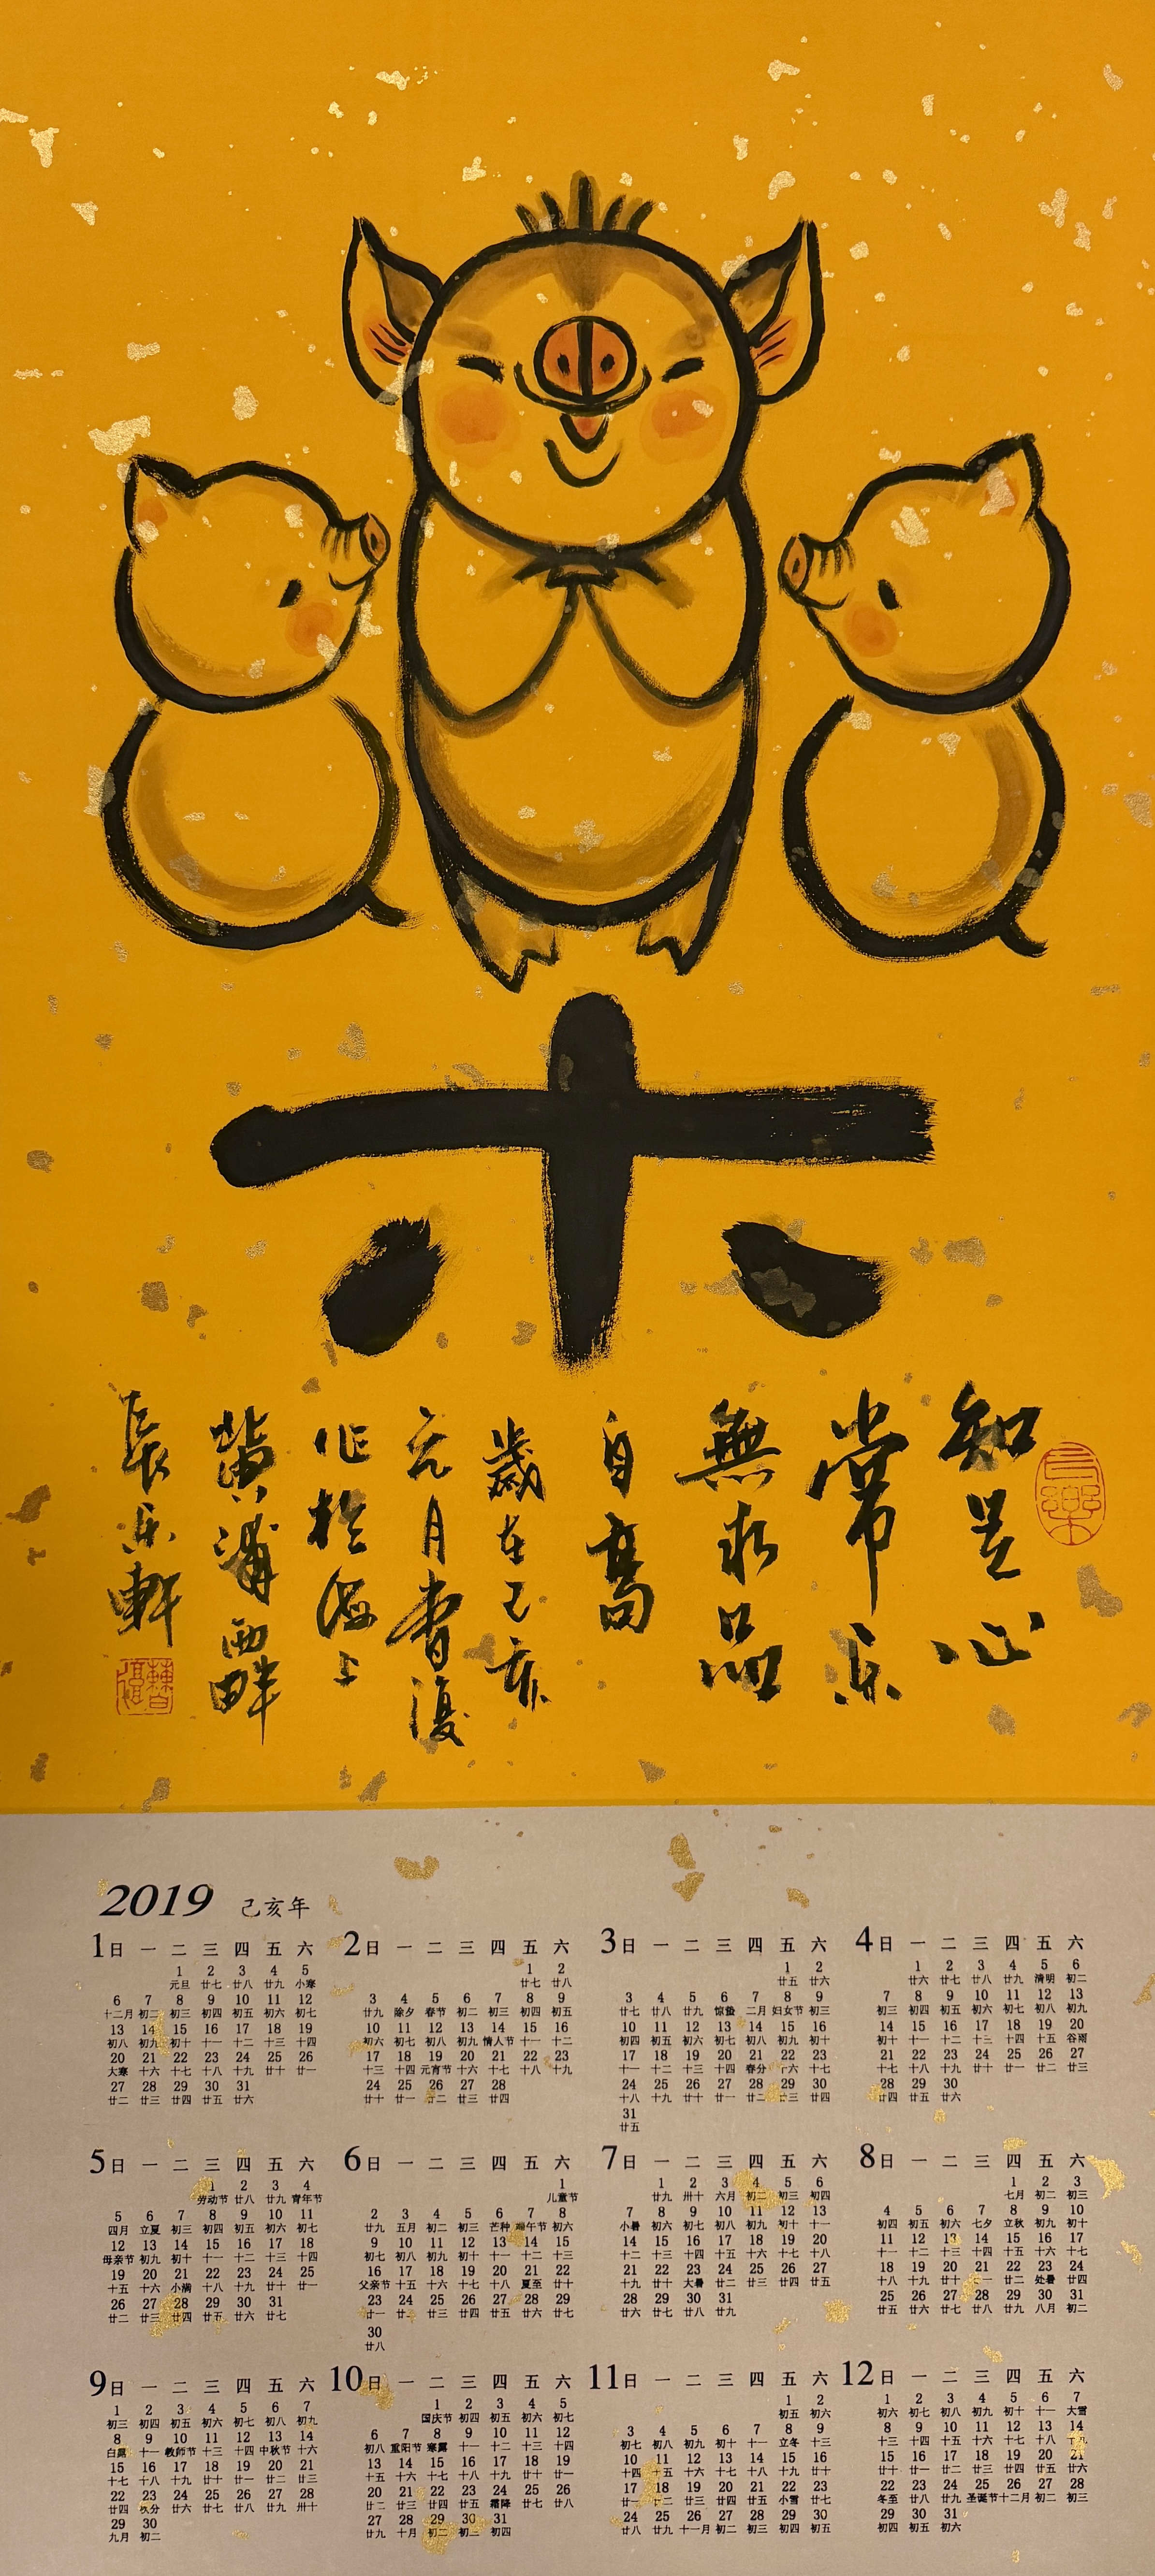 樂
知足心
常乐
無求品
自高
歲在己亥
元月曹復
作於海上
黄浦西畔
長乐軒
2019 己亥年
1 日 一 二 三 四 五 六
1 2 3 4 5
元旦 廿七 廿八 廿九 小寒
6 7 8 9 10 11 12
十二月 初二 初三 初四 初五 初六 初七
13 14 15 16 17 18 19
初八 初九 初十 十一 十二 十三 十四
20 21 22 23 24 25 26
大寒 十六 十七 十八 十九 廿十 廿一
27 28 29 30 31
廿二 廿三 廿四 廿五 廿六
2 日 一 二 三 四 五 六
1 2
廿七 廿八
3 4 5 6 7 8 9
廿九 除夕 春节 初二 初三 初四 初五
10 11 12 13 14 15 16
初六 初七 初八 初九 情人节 十一 十二
17 18 19 20 21 22 23
十三 十四 元宵节 十六 十七 十八 十九
24 25 26 27 28
廿十 廿一 廿二 廿三 廿四
3 日 一 二 三 四 五 六
1 2
廿五 廿六
3 4 5 6 7 8 9
廿七 廿八 廿九 惊蛰 二月 妇女节 初三
10 11 12 13 14 15 16
初四 初五 初六 初七 初八 初九 初十
17 18 19 20 21 22 23
十一 十二 十三 十四 春分 十六 十七
24 25 26 27 28 29 30
十八 十九 廿十 廿一 廿二 廿三 廿四
31
廿五
4 日 一 二 三 四 五 六
1 2 3 4 5 6
廿六 廿七 廿八 廿九 清明 初二
7 8 9 10 11 12 13
初三 初四 初五 初六 初七 初八 初九
14 15 16 17 18 19 20
初十 十一 十二 十三 十四 十五 谷雨
21 22 23 24 25 26 27
十七 十八 十九 廿十 廿一 廿二 廿三
28 29 30
廿四 廿五 廿六
5 日 一 二 三 四 五 六
1 2 3 4
劳动节 廿八 廿九 青年节
5 6 7 8 9 10 11
四月 立夏 初三 初四 初五 初六 初七
12 13 14 15 16 17 18
母亲节 初九 初十 十一 十二 十三 十四
19 20 21 22 23 24 25
十五 十六 小满 十八 十九 廿十 廿一
26 27 28 29 30 31
廿二 廿三 廿四 廿五 廿六 廿七
6 日 一 二 三 四 五 六
1
儿童节
2 3 4 5 6 7 8
廿九 五月 初二 初三 芒种 端午节 初六
9 10 11 12 13 14 15
初七 初八 初九 初十 十一 十二 十三
16 17 18 19 20 21 22
父亲节 十五 十六 十七 十八 夏至 廿十
23 24 25 26 27 28 29
廿一 廿二 廿三 廿四 廿五 廿六 廿七
30
廿八
7 日 一 二 三 四 五 六
1 2 3 4 5 6
廿九 卅十 六月 初二 初三 初四
7 8 9 10 11 12 13
小暑 初六 初七 初八 初九 初十 十一
14 15 16 17 18 19 20
十二 十三 十四 十五 十六 十七 十八
21 22 23 24 25 26 27
十九 廿十 大暑 廿二 廿三 廿四 廿五
28 29 30 31
廿六 廿七 廿八 廿九
8 日 一 二 三 四 五 六
1 2 3
七月 初二 初三
4 5 6 7 8 9 10
初四 初五 初六 七夕 立秋 初九 初十
11 12 13 14 15 16 17
十一 十二 十三 十四 十五 十六 十七
18 19 20 21 22 23 24
十八 十九 廿十 廿一 廿二 处暑 廿四
25 26 27 28 29 30 31
廿五 廿六 廿七 廿八 廿九 八月 初二
9 日 一 二 三 四 五 六
1 2 3 4 5 6 7
初三 初四 初五 初六 初七 初八 初九
8 9 10 11 12 13 14
白露 十一 教师节 十三 十四 中秋节 十六
15 16 17 18 19 20 21
十七 十八 十九 廿十 廿一 廿二 廿三
22 23 24 25 26 27 28
廿四 秋分 廿六 廿七 廿八 廿九 卅十
29 30
九月 初二
10 日 一 二 三 四 五 六
1 2 3 4 5
国庆节 初四 初五 初六 初七
6 7 8 9 10 11 12
初八 重阳节 寒露 十一 十二 十三 十四
13 14 15 16 17 18 19
十五 十六 十七 十八 十九 廿十 廿一
20 21 22 23 24 25 26
廿二 廿三 廿四 廿五 霜降 廿七 廿八
27 28 29 30 31
廿九 十月 初二 初三 初四
11 日 一 二 三 四 五 六
1 2
初五 初六
3 4 5 6 7 8 9
初七 初八 初九 初十 十一 立冬 十三
10 11 12 13 14 15 16
十四 十五 十六 十七 十八 十九 廿十
17 18 19 20 21 22 23
廿一 廿二 廿三 廿四 廿五 小雪 廿七
24 25 26 27 28 29 30
廿八 廿九 十一月 初二 初三 初四 初五
12 日 一 二 三 四 五 六
1 2 3 4 5 6 7
初六 初七 初八 初九 初十 十一 大雪
8 9 10 11 12 13 14
十三 十四 十五 十六 十七 十八 十九
15 16 17 18 19 20 21
廿十 廿一 廿二 廿三 廿四 廿五 廿六
22 23 24 25 26 27 28
冬至 廿八 廿九 圣诞节 十二月 初二 初三
29 30 31
初四 初五 初六